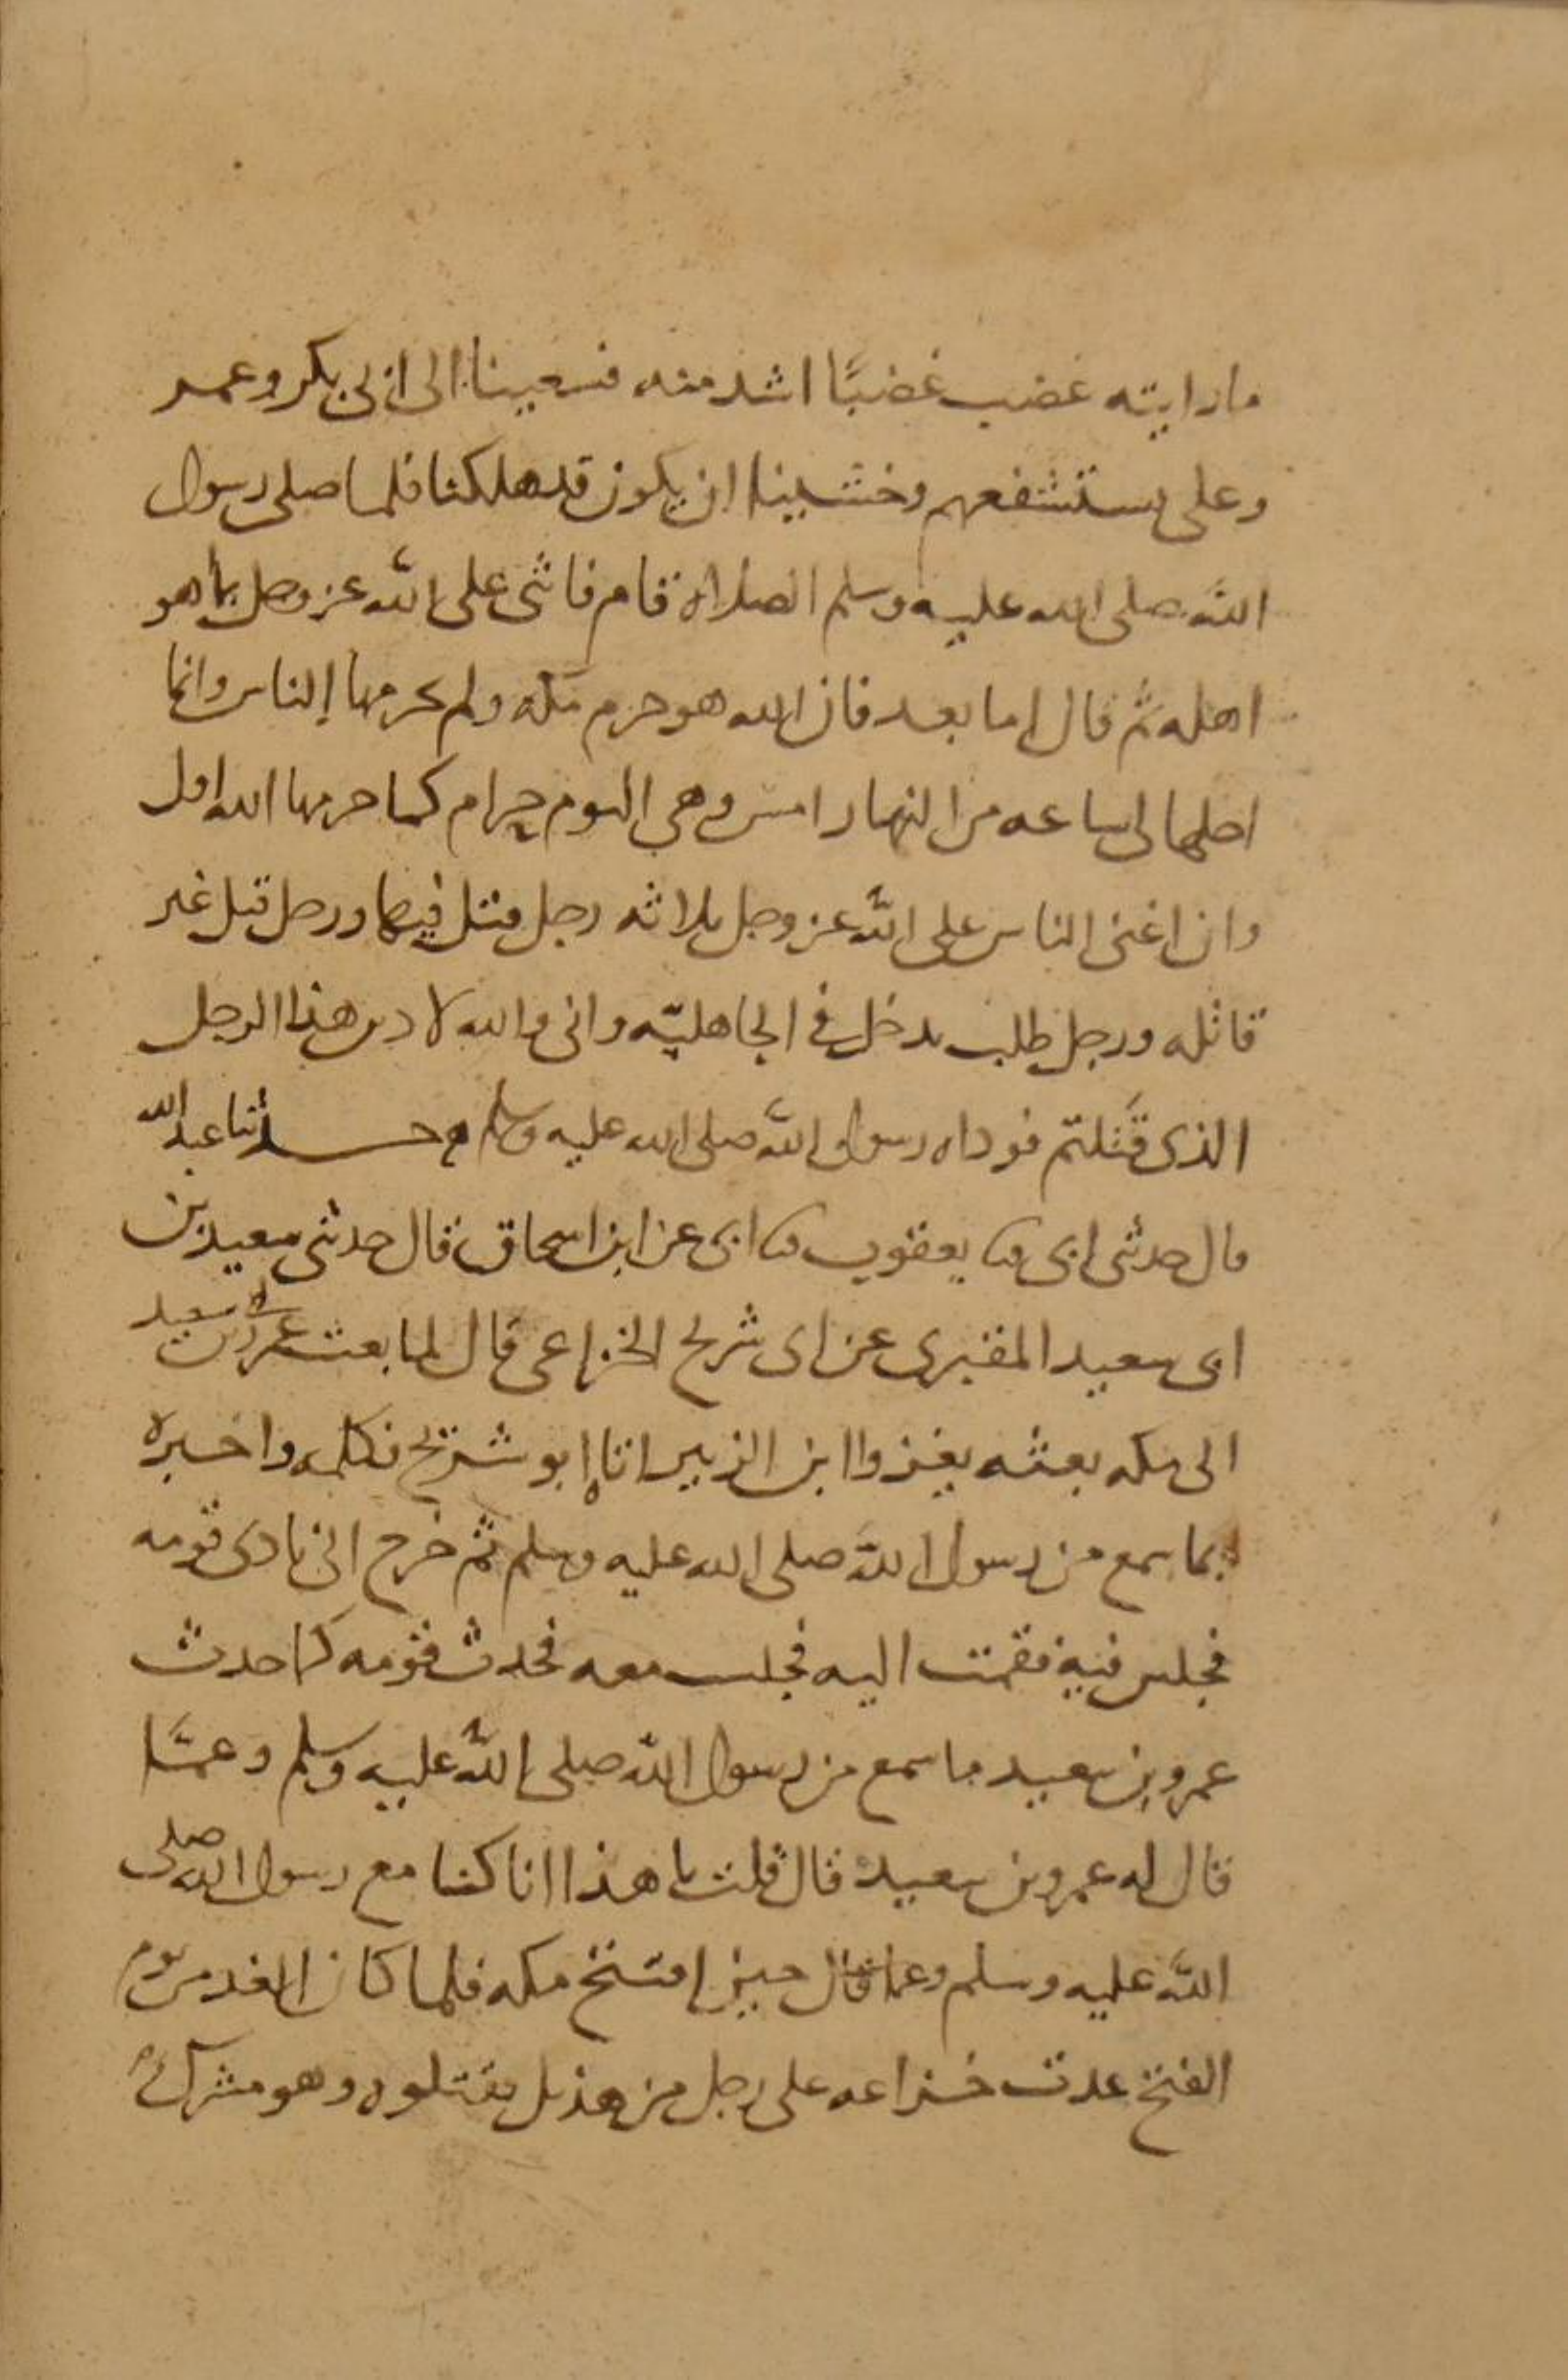 ما رايته غضب غضبًا اشد منه فسعينا الى ابى بكر وعمر
وعلى نستشفعهم وخشينا ان يكون قد هلكنا فلما صلى رسول
الله صلى الله عليه وسلم الصلاة قام فاثنى على الله عز وجل بما هو
اهله ثم قال اما بعد فان الله هو حرم مكه ولم يحرمها الناس وانما
احلها لى ساعه من النهار امس وهى اليوم حرام كما حرمها الله اول
وان اعتى الناس على الله عز وجل ثلاثه رجل قتل فيها ورجل قتل غير
قاتله ورجل طلب بدخل فى الجاهليّه وانى والله لادين هذا الرجل
الذى قَتَلتم فوداه رسول الله صلى الله عليه وسلم حدثنا عبد الله
قال حدثنى ابى ثنا يعقوب ثنا ابى عن ابن اسحاق قال حدثنى سعيد بن
ابى سعيد المقبرى عن ابى شريح الخزاعى قال لما بعث عمرو بن سعيد
الى مكه بعثه يغزوا ابن الزبير اتاه ابو شريح فكلمه واخبره
بما سمع من رسول الله صلى الله عليه وسلم ثم خرج الى نادى قومه
فجلس فيه فقمت اليه فجلست معه فحدث قومه كما حدث
عمرو بن سعيد ما سمع من رسول الله صلى الله عليه وسلم وعمَّا
قال له عمرو بن سعيد قال قلت يا هذا انا كنا مع رسول الله صلى
الله عليه وسلم حين افتتح مكه فلما كان الغد من يوم
الفتح عدت خزاعه على رجل من هذيل فقتلوه وهو مشرك